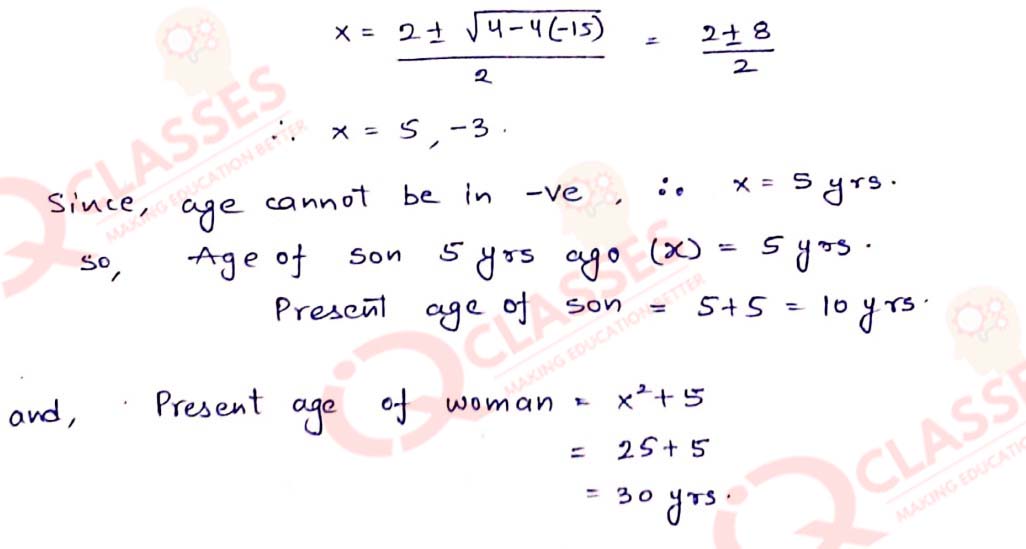 x = 2 ± √4-4(-15) / 2 = 2 ± 8 / 2
∴ x = 5, -3.
Since, age cannot be in -ve, ∴ x = 5 yrs.
so, Age of son 5 yrs ago (x) = 5 yrs.
Present age of son = 5+5 = 10 yrs.
and, Present age of woman = x²+5
= 25+5
= 30 yrs.
CLASSES
MAKING EDUCATION BETTER
CLASSES
MAKING EDUCATION BETTER
CLASSE
MAKING EDUCATIO